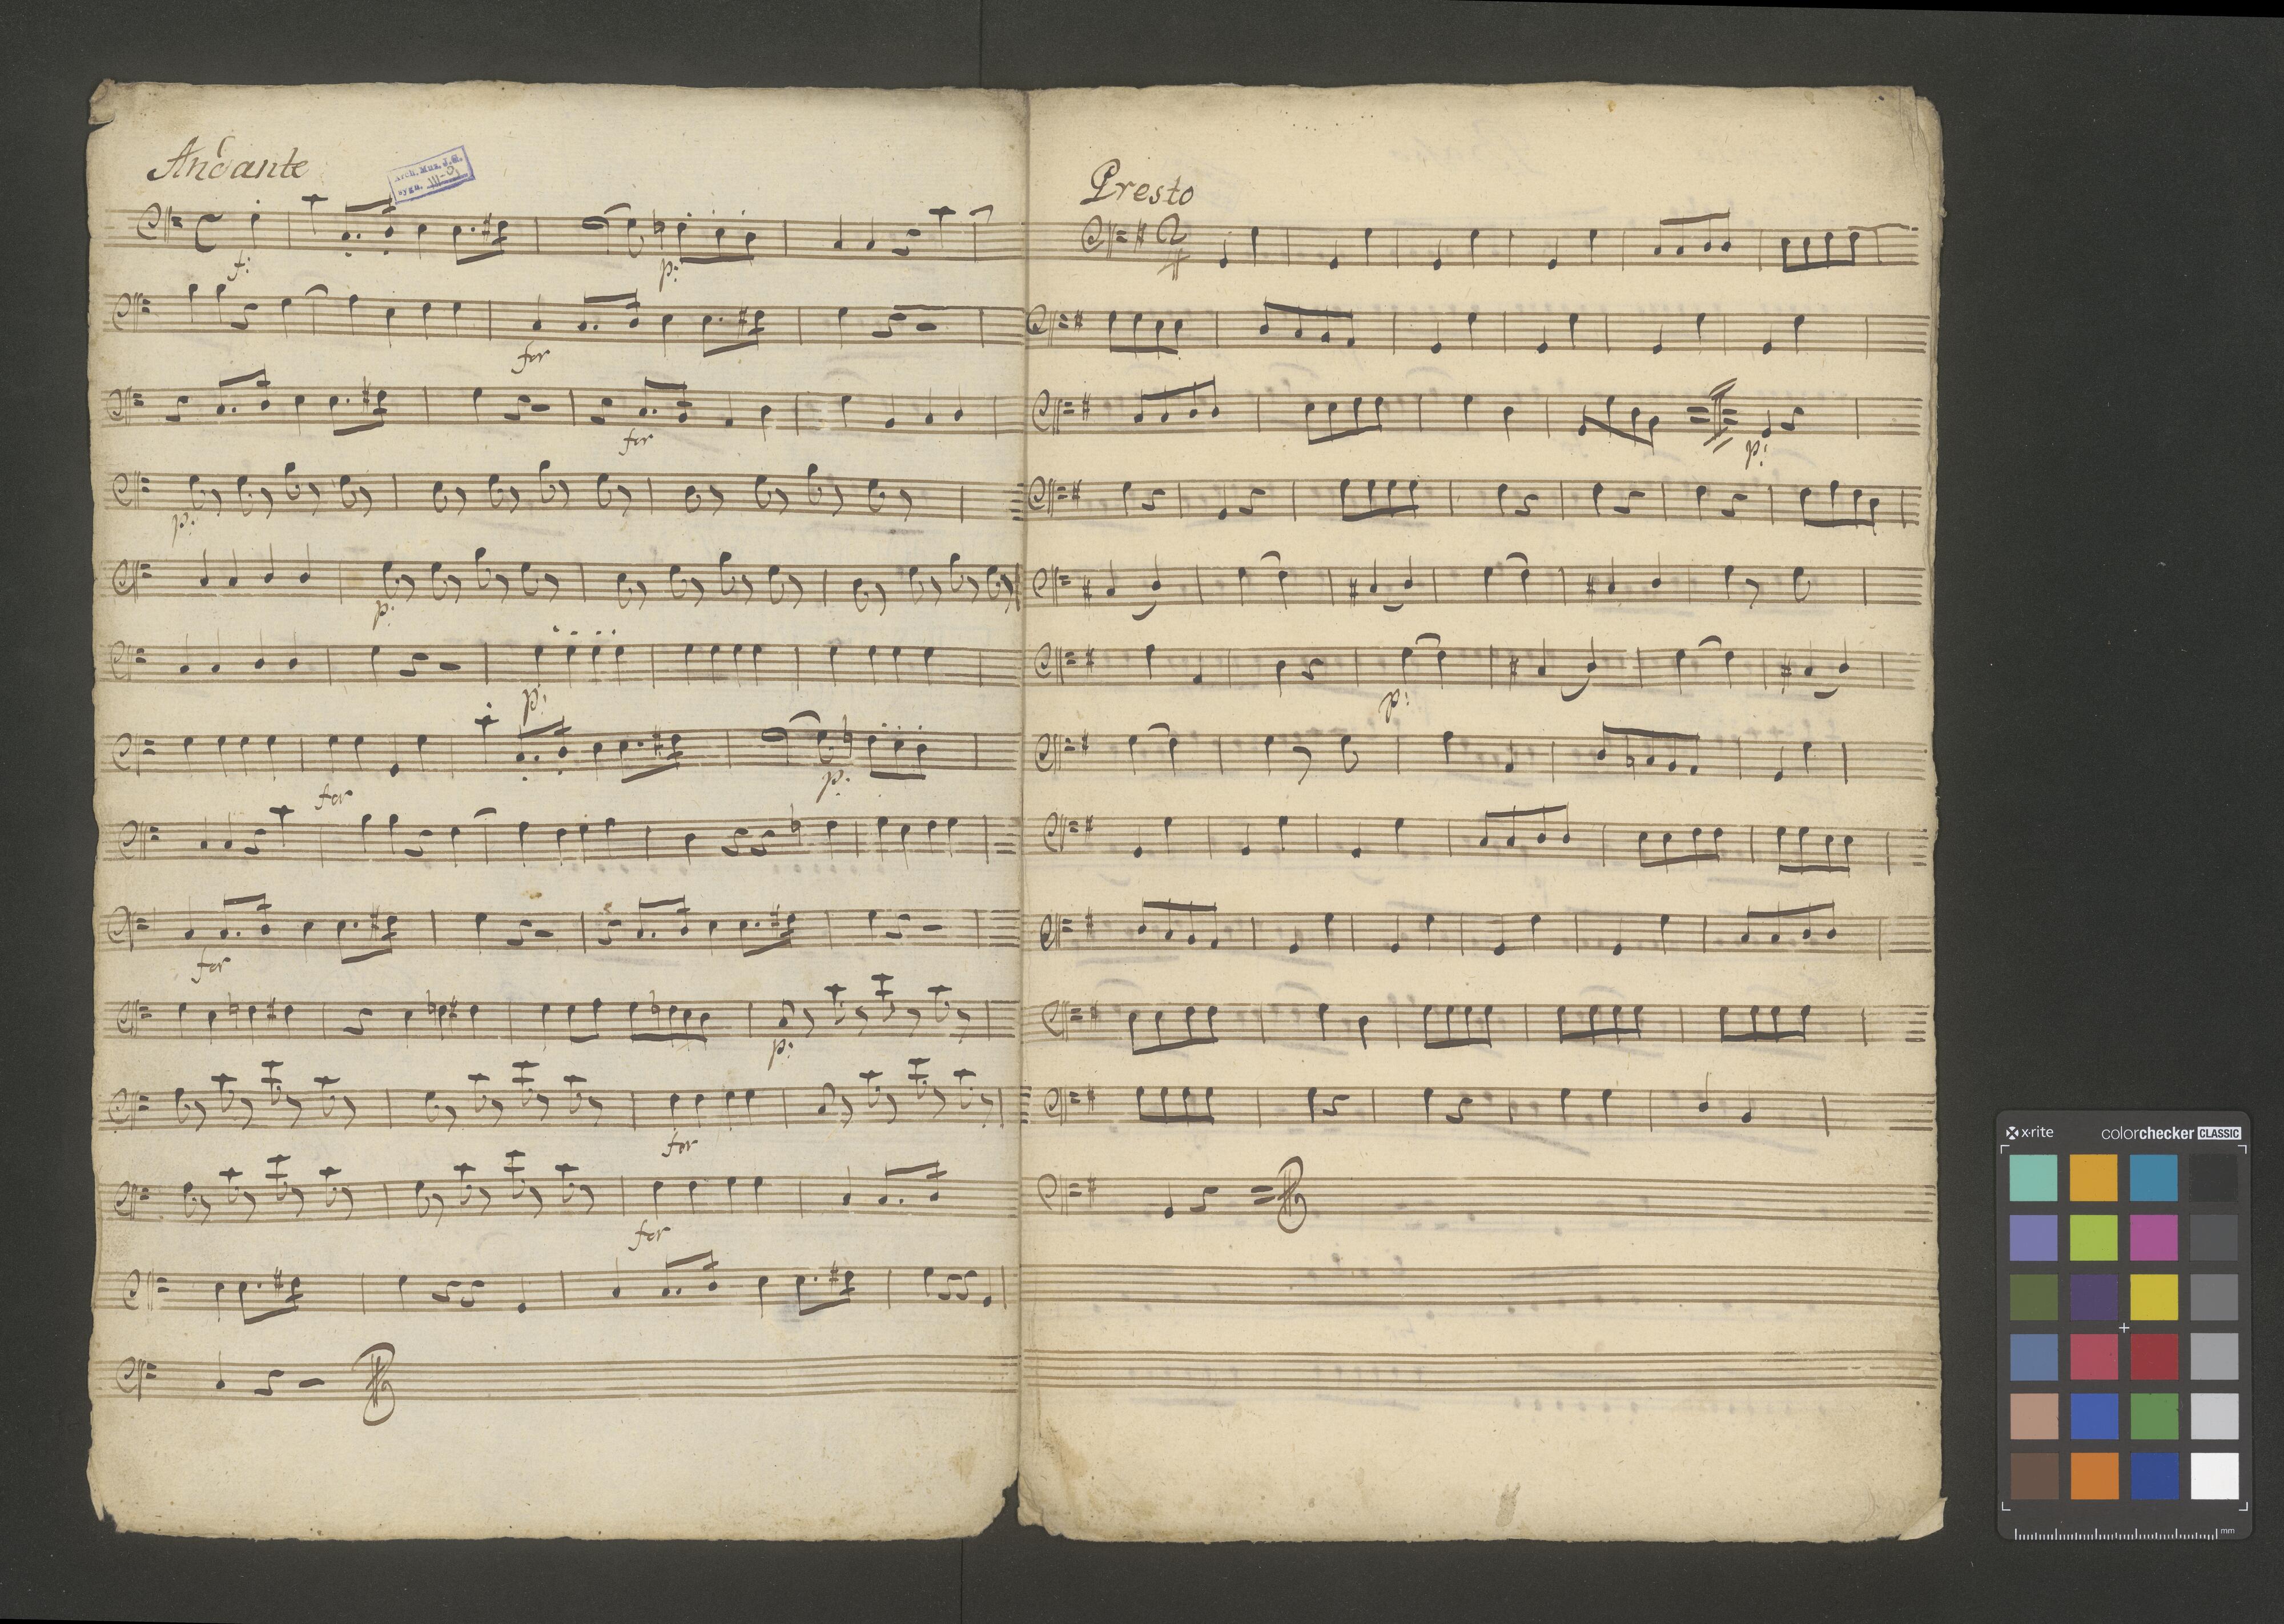 Andante
Arch. Mus. J.G.
sygn. III-
f:
p:
for
for
p:
p:
p:
for
p:
for
p:
for
for
Presto
2
4
p:
p:
x-rite
colorchecker CLASSIC
mm